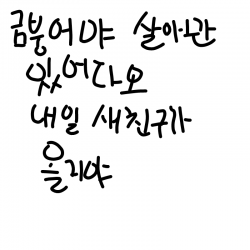 금붕어야 살아만
있어다오
내일 새친구가
올리야